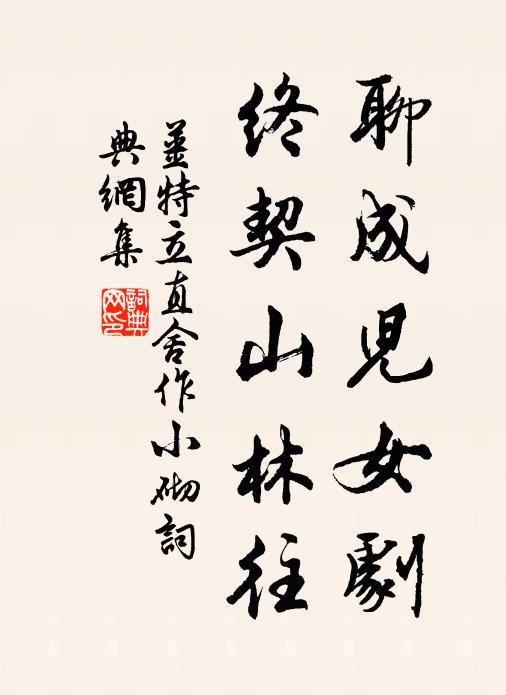 聊成児女劇
終契山林往
姜特立直舍作小砌詞
典網集
詞典
网印